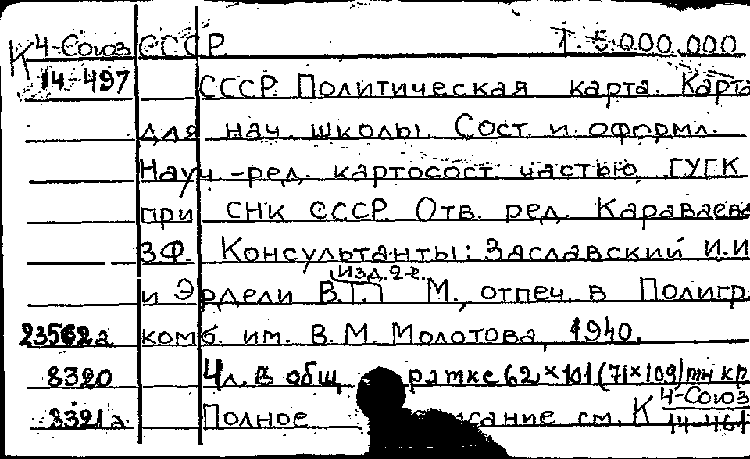 К 4-Союз СССР 1:5.000.000
14-497 СССР. Политическая карта. Карта
для нач. школы. Сост. и оформл.
Науч.-ред. картосост. частью ГУГК
при СНК СССР. Отв. ред. Караваева
З.Ф. Консультанты: Заславский И.И.
изд. 2-е.
и Эрдели В.Г. М., отпеч. в Полигр.
23562а комб. им. В.М. Молотова, 1940.
8320 4 л. в общ. рамке 62×101 (71×109)
8321а Полное см. К 4-Союз
14-461